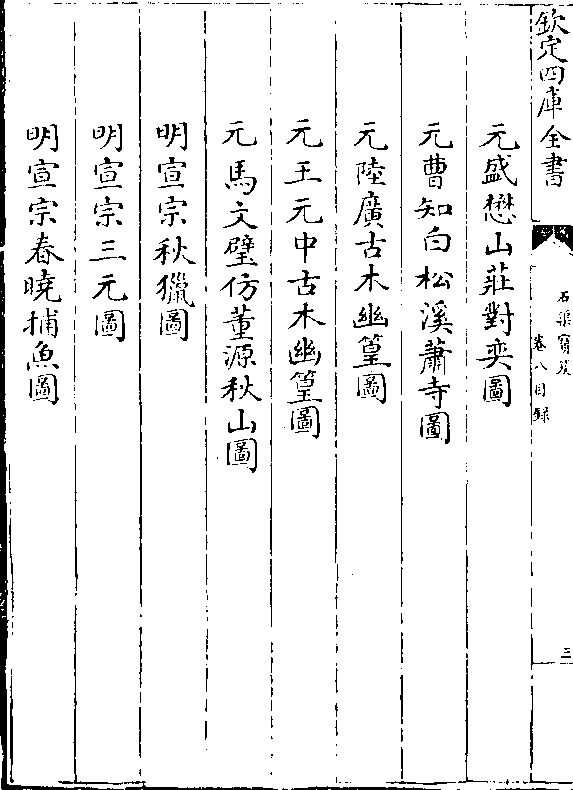 欽定四庫全書
石渠寶笈
卷八目録
三
元盛懋山莊對奕圖
元曹知白松溪蕭寺圖
元陸廣古木幽篁圖
元王元中古木幽篁圖
元馬文璧仿董源秋山圖
明宣宗秋獵圖
明宣宗三元圖
明宣宗春曉捕魚圖